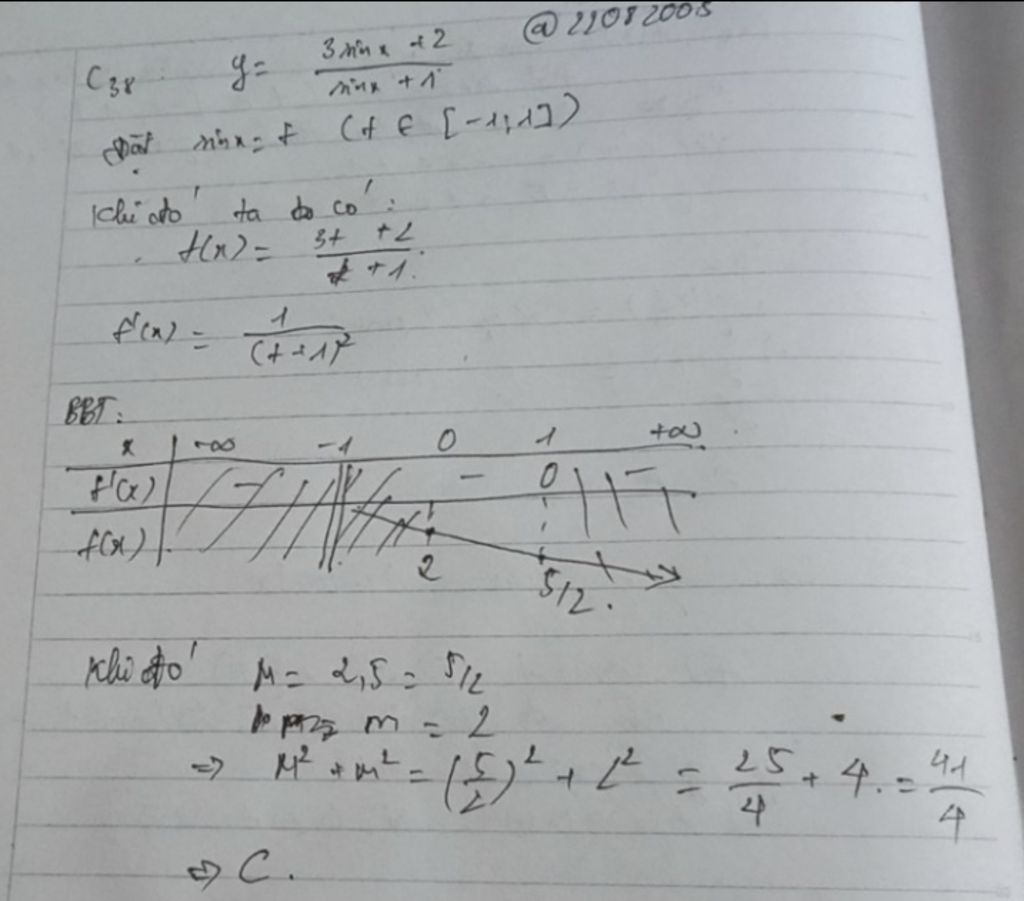 @22082005
C38. y = (3 sinx + 2)/(sinx + 1)
Đặt sinx = t (t ∈ [-1;1])
Khi đó ta có:
f(x) = (3t + 2)/(t + 1).
f'(x) = 1/(t + 1)²
BBT:
x -∞ -1 0 1 +∞
f'(x) - - 0 -
f(x) 2 5/2.
Khi đó M = 2,5 = 5/2
m = 2
⇒ M² + m² = (5/2)² + 2² = 25/4 + 4. = 41/4
⇒ C.